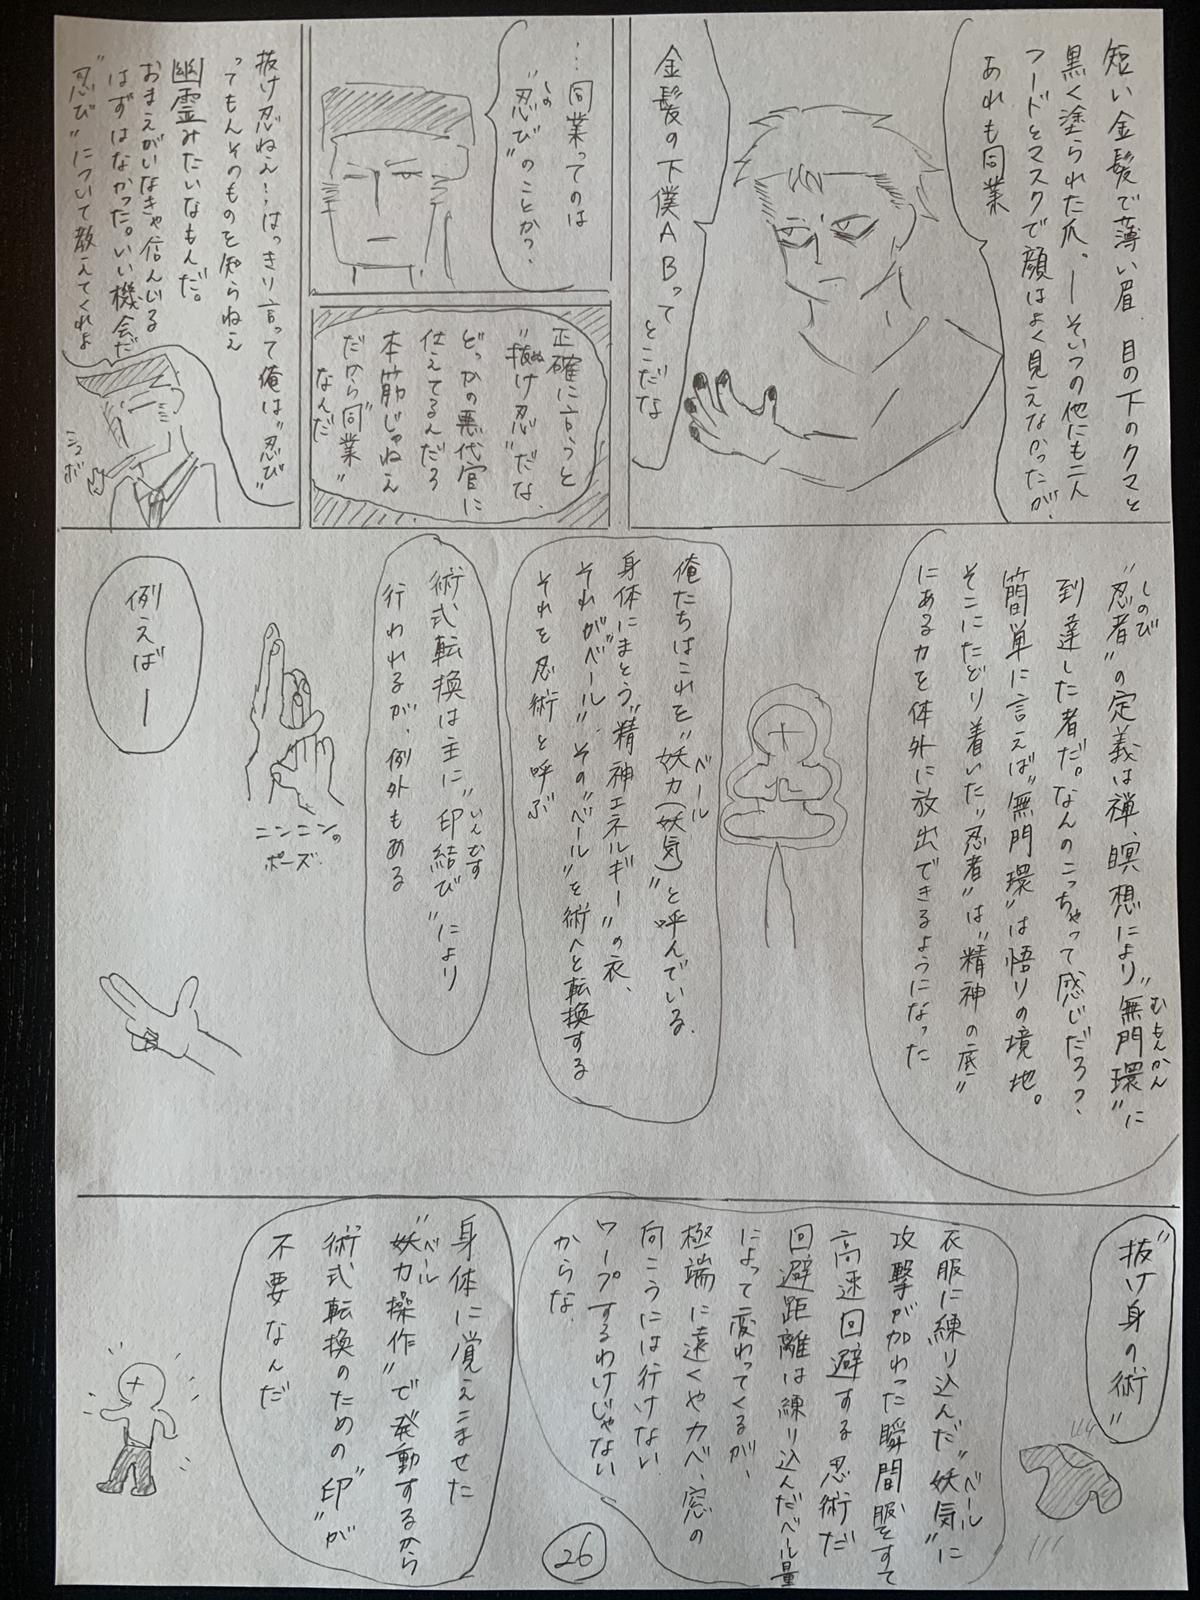 短い金髪で薄い眉、目の下のクマと
黒く塗られた爪、―そいつの他にも二人
フードとマスクで顔はよく見えなかったが、
あれも同業
金髪の下僕ABって
とこだな
…同業ってのは
しの
"忍び"のことか?
正確に言うと
ぬ
"抜け忍"だな、
どっかの悪代官に
仕えてるんだろ
本筋じゃねえ
だから"同業"
なんだ
抜け忍ねえ…はっきり言って俺は"忍び"
ってもんそのものを知らねえ
幽霊みたいなもんだ。
おまえがいなきゃ信んじる
はずはなかった。いい機会だ
"忍び"について教えてくれよ
シュボ
しのび
むもんかん
"忍者"の定義は禅、瞑想により"無門環"に
到達した者だ。なんのこっちゃって感じだろ?、
簡単に言えば"無門環"は悟りの境地。
そこにたどり着いた"忍者"は"精神の底"
にある力を体外に放出できるようになった
ベール
俺たちはこれを"妖力(妖気)"と呼んでいる、
身体にまとう"精神エネルギー"の衣、
それが"ベール"、その"ベール"を術へと転換する
それを忍術と呼ぶ
いんむす
術式転換は主に"印結び"により
行われるが、例外もある
ニンニン。
ポーズ。
例えば―
"抜け身の術"
ベール
衣服に練り込んだ"妖気"に
攻撃が加わった瞬間服をすて
高速回避する忍術だ
回避距離は練り込んだベール量
によって変わってくるが、
極端に遠くやカベ、窓の
向こうには行けない
ワープするわけじゃない
からな、
身体に覚えこませた
ベール
"妖力操作"で発動するから
術式転換のための"印"が
不要なんだ
26